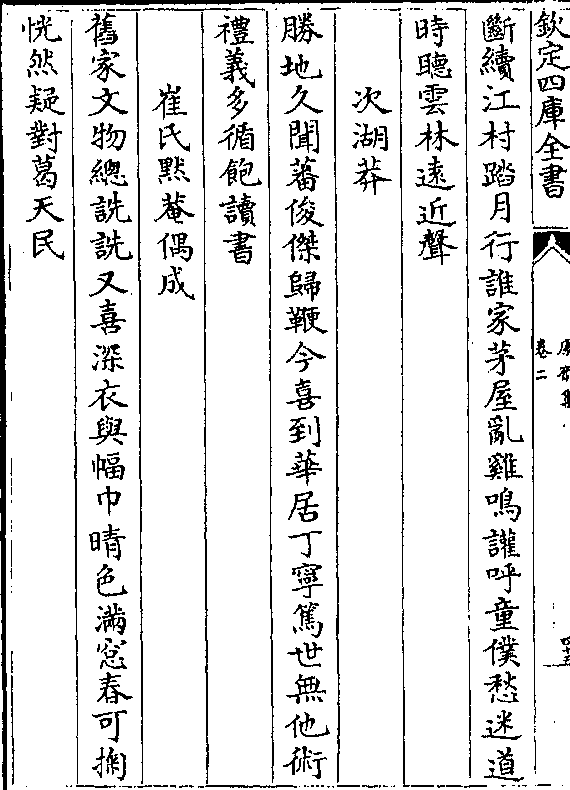 欽定四庫全書
卷二
斷續江村踏月行誰家茅屋亂雞鳴讙呼童僕愁迷道
時聽雲林遠近聲
次湖莽
勝地久聞蕃俊傑歸鞭今喜到華居丁寧篤世無他術
禮義多循飽讀書
崔氏默菴偶成
舊家文物總詵詵又喜深衣與幅巾晴色滿窓春可掬
恍然疑對葛天民